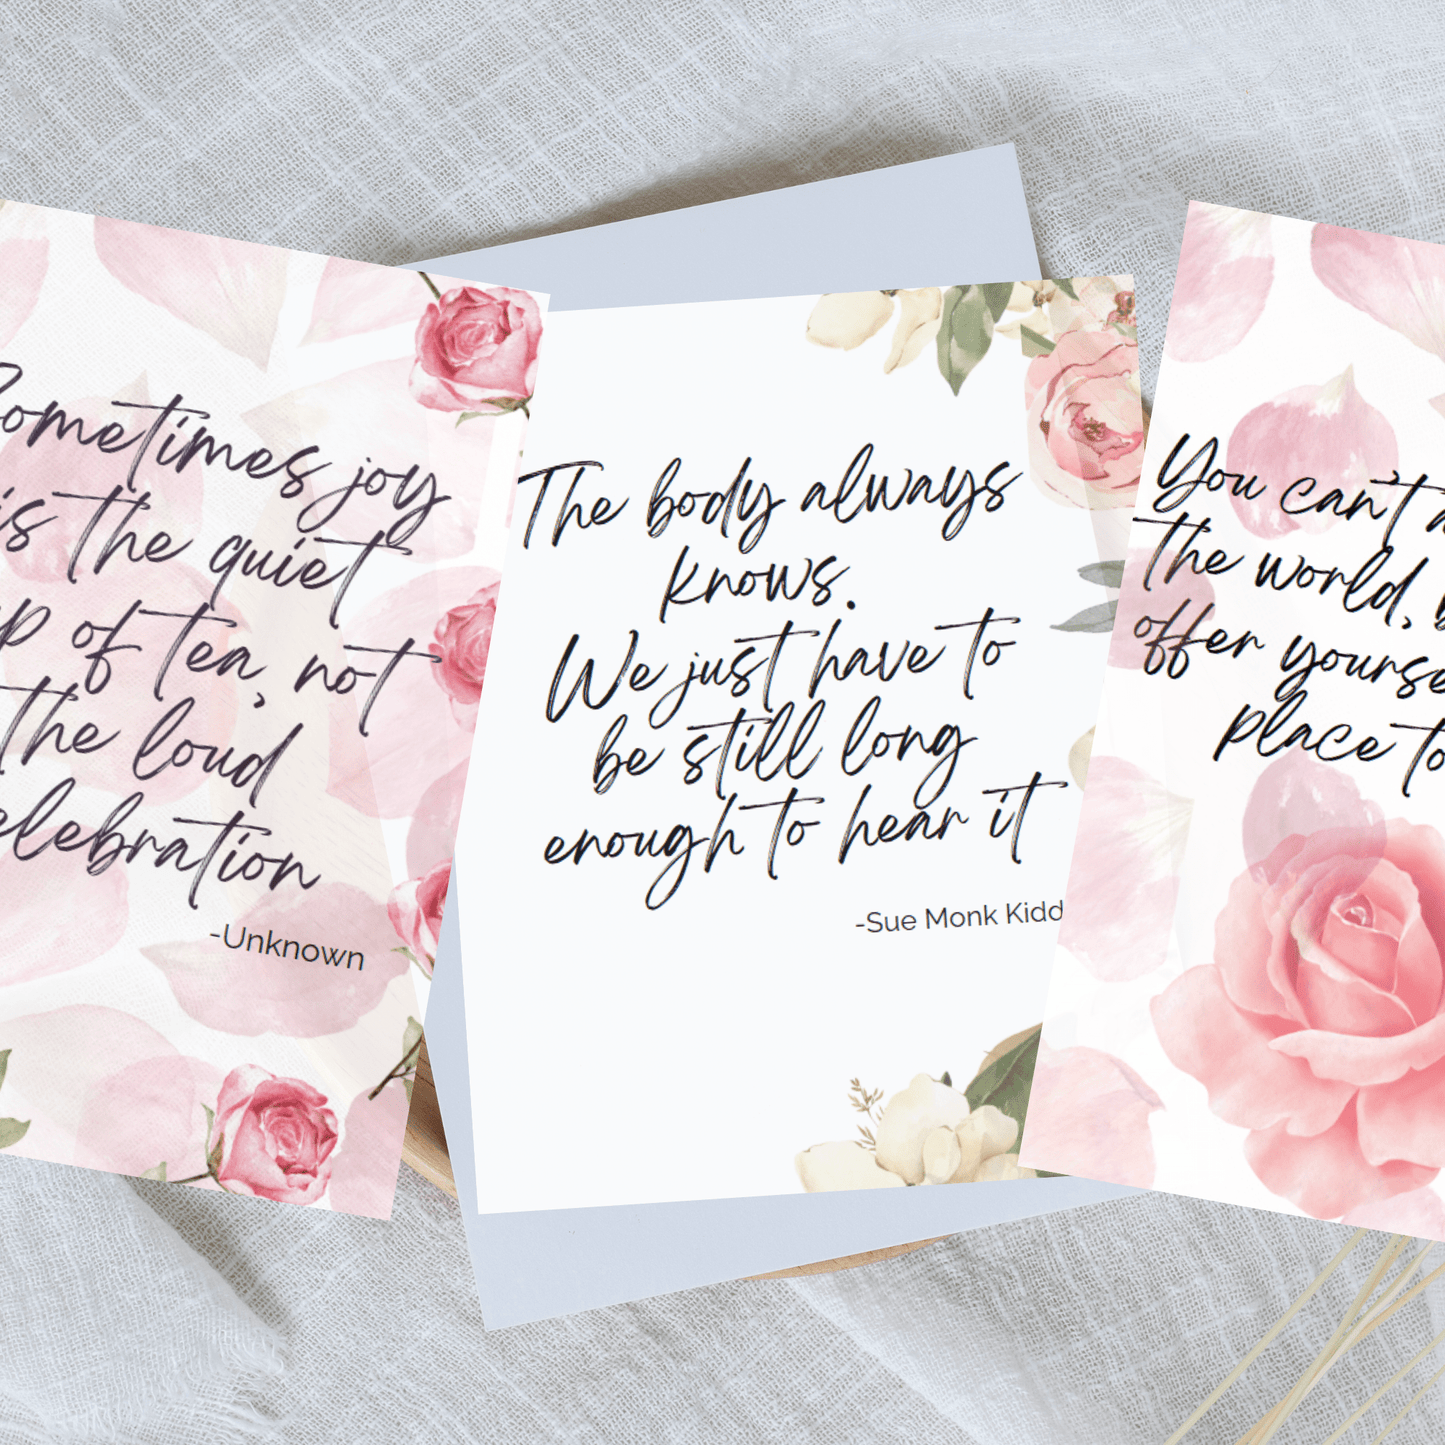 Sometimes joy
is the quiet
p of tea, not
the loud
elebration
-Unknown
The body always
knows.
We just have to
be still long
enough to hear it
-Sue Monk Kidd
You can't
the world,
offer yourse
place to